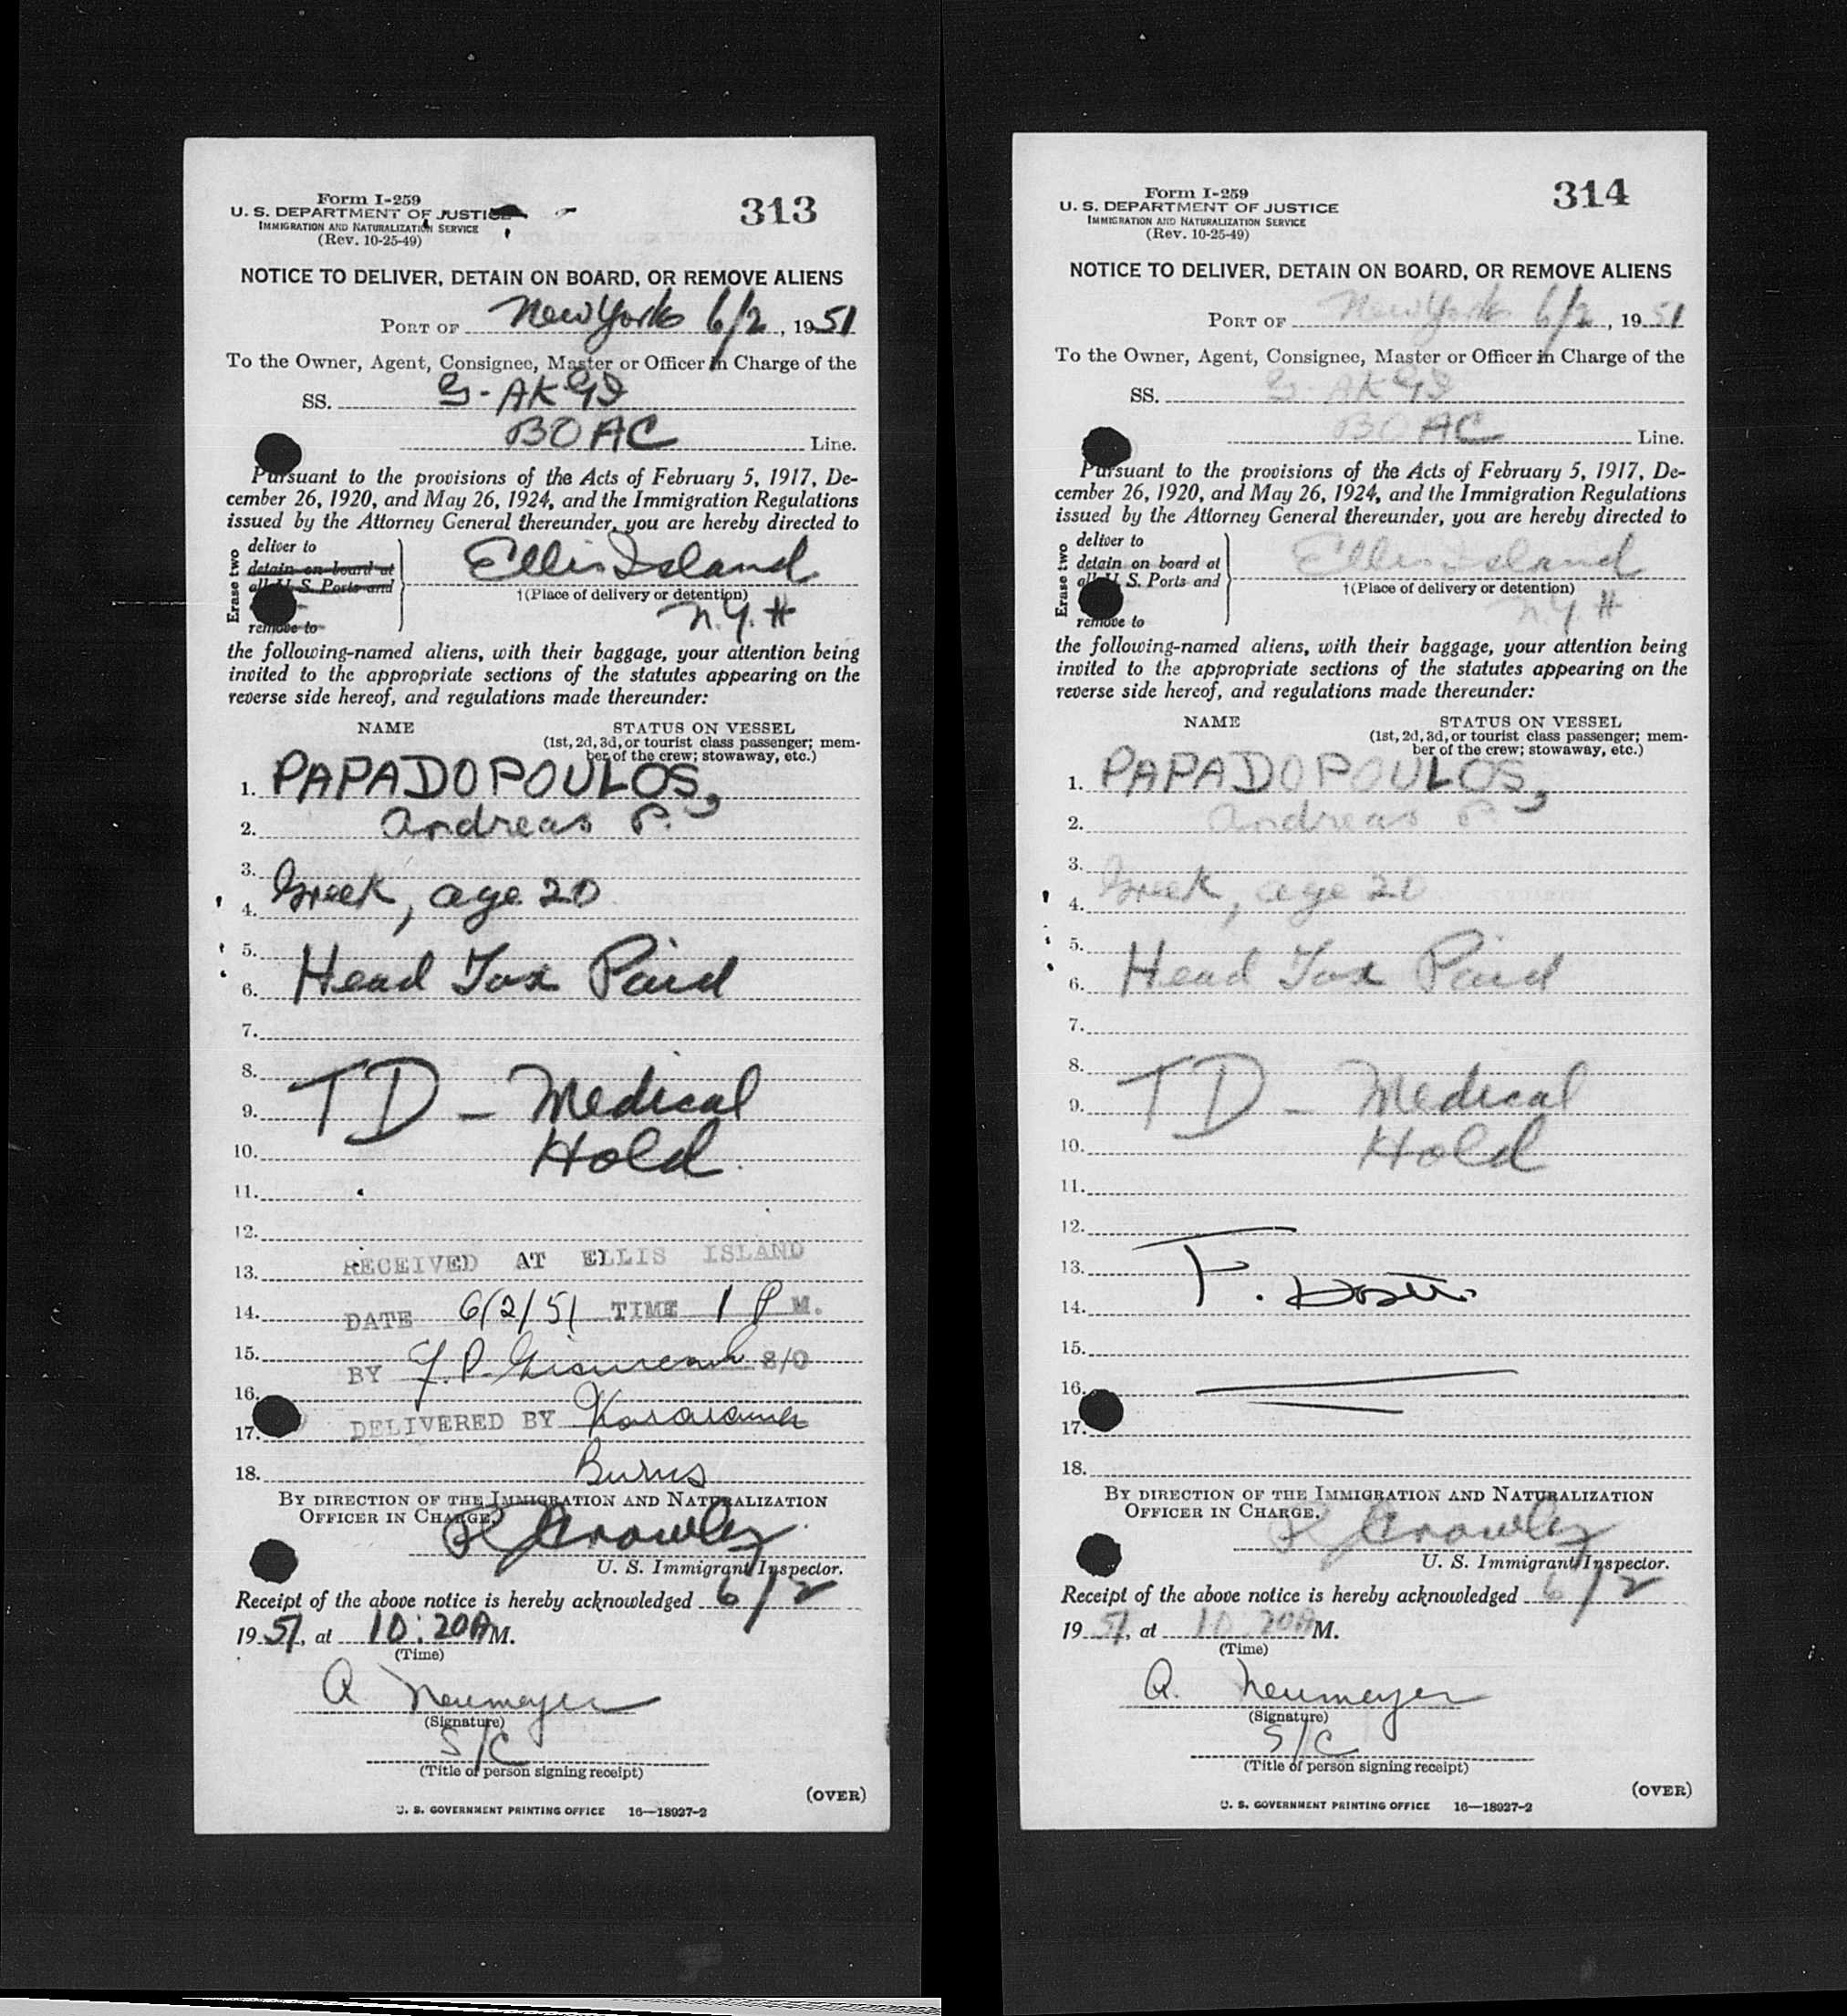 Form I-259
U. S. DEPARTMENT OF JUSTICE
IMMIGRATION AND NATURALIZATION SERVICE
(Rev. 10-25-49)
313
NOTICE TO DELIVER, DETAIN ON BOARD, OR REMOVE ALIENS
PORT OF New York 6/2, 1951
To the Owner, Agent, Consignee, Master or Officer in Charge of the
SS. G-AKGI
BOAC Line.
Pursuant to the provisions of the Acts of February 5, 1917, De-
cember 26, 1920, and May 26, 1924, and the Immigration Regulations
issued by the Attorney General thereunder, you are hereby directed to
Erase two
deliver to
detain on board at
all U. S. Ports and
remove to
Ellis Island
†(Place of delivery or detention)
N.Y. H
the following-named aliens, with their baggage, your attention being
invited to the appropriate sections of the statutes appearing on the
reverse side hereof, and regulations made thereunder:
NAME STATUS ON VESSEL
(1st, 2d, 3d, or tourist class passenger; mem-
ber of the crew; stowaway, etc.)
1. PAPADOPOULOS,
2. Andreas P.
3.
4. Greek, age 20
5.
6. Head Tax Paid
7.
8.
9. TD - Medical
10. Hold
11.
12.
13. RECEIVED AT ELLIS ISLAND
14. DATE 6/2/51 TIME 1 P M.
15.
BY S/O
16.
17. DELIVERED BY
18. Burns
BY DIRECTION OF THE IMMIGRATION AND NATURALIZATION
OFFICER IN CHARGE.
Crowley
U. S. Immigrant Inspector.
Receipt of the above notice is hereby acknowledged 6/2
1951, at 10:20AM.
(Time)
A Neumeyer
(Signature)
S/C
(Title of person signing receipt)
(OVER)
U. S. GOVERNMENT PRINTING OFFICE 16—18927-2
Form I-259
U. S. DEPARTMENT OF JUSTICE
IMMIGRATION AND NATURALIZATION SERVICE
(Rev. 10-25-49)
314
NOTICE TO DELIVER, DETAIN ON BOARD, OR REMOVE ALIENS
PORT OF New York 6/2, 1951
To the Owner, Agent, Consignee, Master or Officer in Charge of the
SS. G-AKGI
BOAC Line.
Pursuant to the provisions of the Acts of February 5, 1917, De-
cember 26, 1920, and May 26, 1924, and the Immigration Regulations
issued by the Attorney General thereunder, you are hereby directed to
Erase two
deliver to
detain on board at
all U. S. Ports and
remove to
Ellis Island
†(Place of delivery or detention)
N.Y. H
the following-named aliens, with their baggage, your attention being
invited to the appropriate sections of the statutes appearing on the
reverse side hereof, and regulations made thereunder:
NAME STATUS ON VESSEL
(1st, 2d, 3d, or tourist class passenger; mem-
ber of the crew; stowaway, etc.)
1. PAPADOPOULOS,
2. Andreas P.
3.
4. Greek, age 20
5.
6. Head Tax Paid
7.
8.
9. TD - Medical
10. Hold
11.
12.
13.
14.
15.
16.
17.
18.
BY DIRECTION OF THE IMMIGRATION AND NATURALIZATION
OFFICER IN CHARGE.
Crowley
U. S. Immigrant Inspector.
Receipt of the above notice is hereby acknowledged 6/2
1951, at 10:20AM.
(Time)
A. Neumeyer
(Signature)
S/C
(Title of person signing receipt)
(OVER)
U. S. GOVERNMENT PRINTING OFFICE 16—18927-2